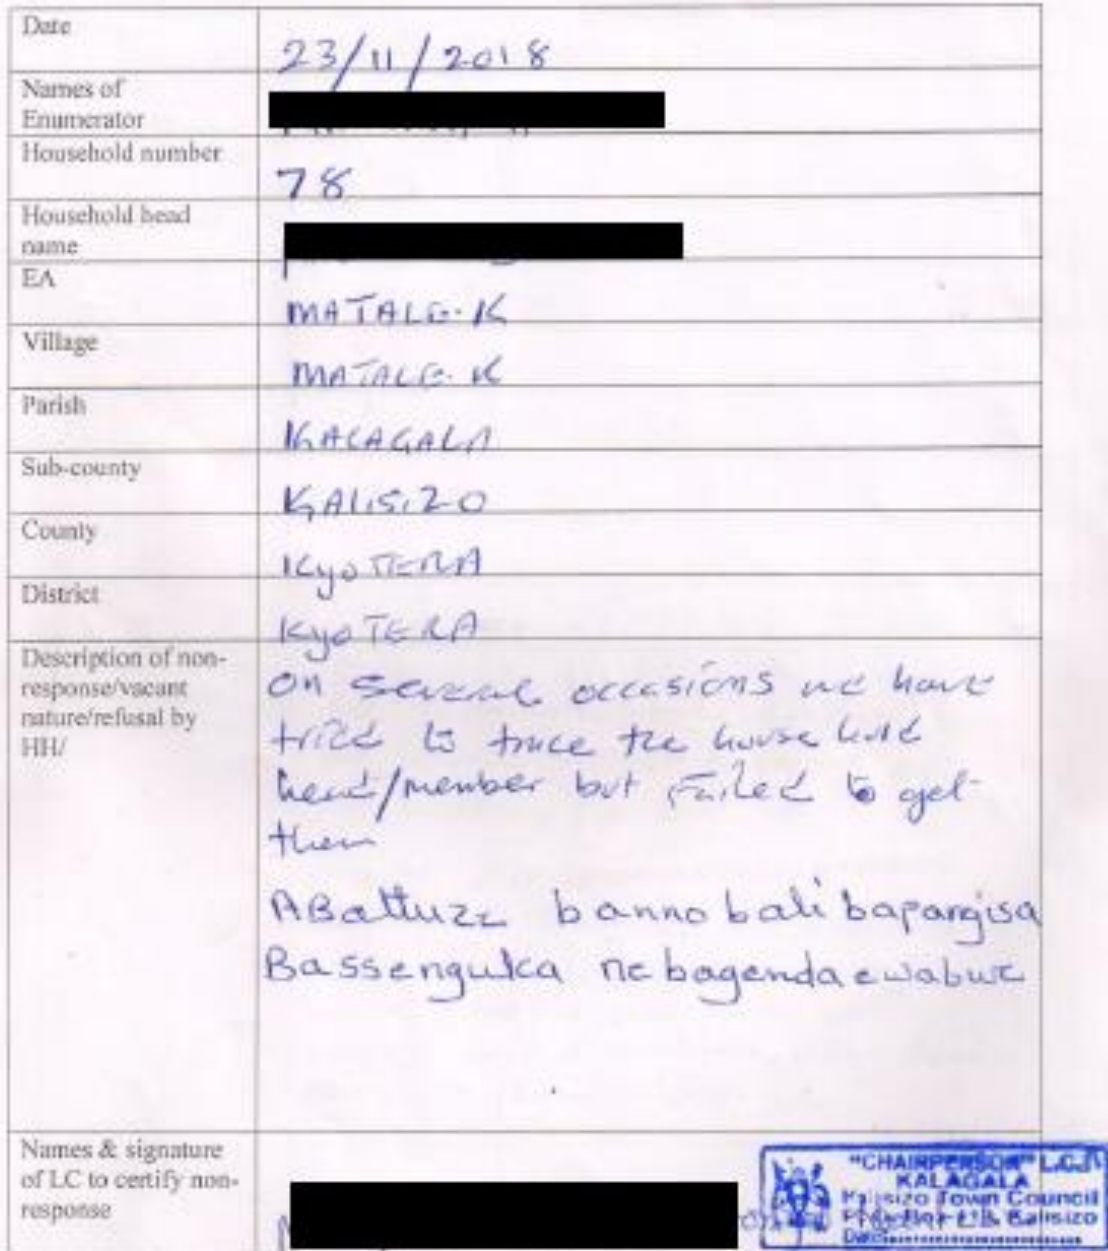 Date
23/11/2018
Names of
Enumerator
Household number
78
Household head
name
EA
MATALE-K
Village
MATALE-K
Parish
KALAGALA
Sub-county
KALISIZO
County
KyoTERA
District
KyoTERA
Description of non-
response/vacant
nature/refusal by
HH/
On several occasions we have
tried to trace the house hold
head/member but failed to get
them
ABattuze banno bali bapangisa
Bassenguka ne bagenda ewabwe
Names & signature
of LC to certify non-
response
"CHAIRPERSON" L.C.I
KALAGALA
Kalisizo Town Council
Kalisizo
Date